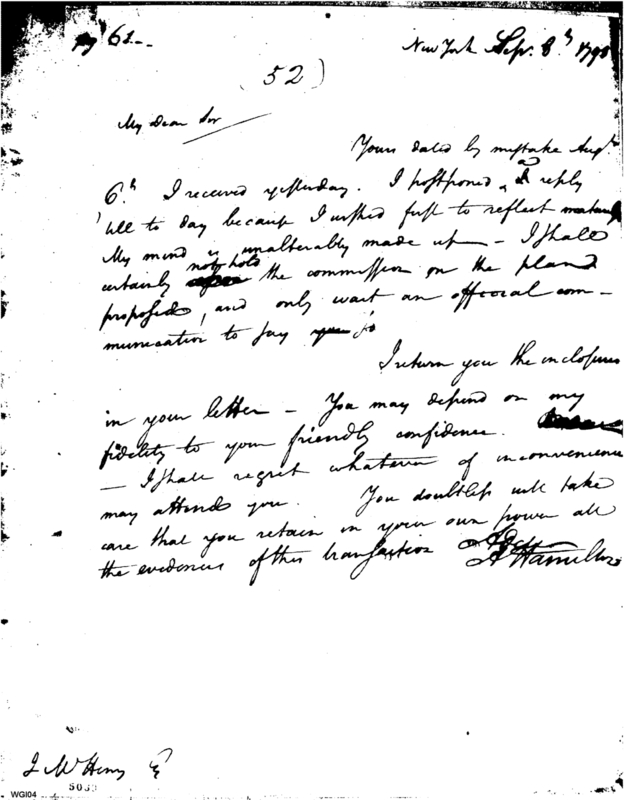 61 -
New York Sep. 8.th 1798
(52)
My Dear Sir
Yours dated by mistake Augt.
6.th I received yesterday. I postponed a reply
till to day because I wished first to reflect maturely
My mind is unalterably made up - I shall
certainly not hold the commission on the plan
proposed, and only wait an official com-
munication to say so
I return you the inclosures
in your letter - You may depend on my
fidelity to your friendly confidence.
- I shall regret whatever of inconvenience
may attend you. You doubtless will take
care that you retain in your own power all
the evidences of this transaction
A Hamilton
J McHenry E
5033
WGI04